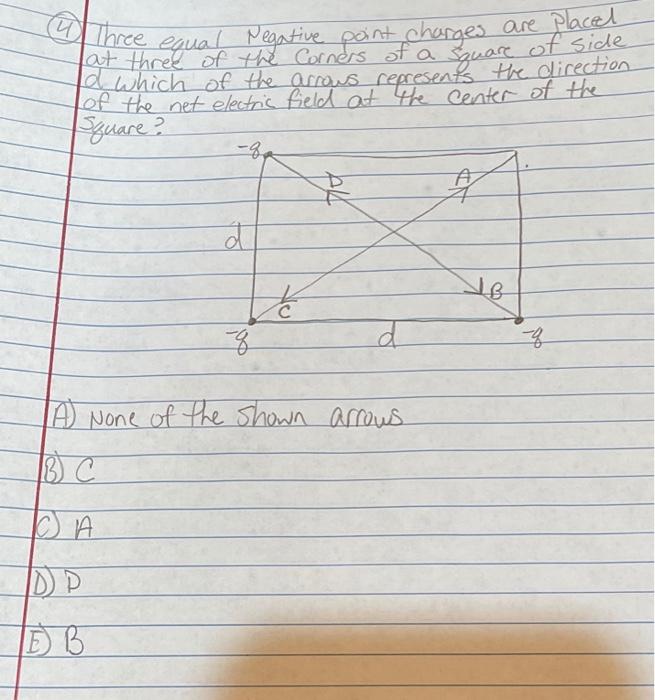 4) Three equal Negative point charges are placed
at three of the Corners of a Square of side
d which of the arrows represents the direction
of the net electric field at the center of the
Square?
-q
D
A
d
B
C
-q
d
-q
A) None of the shown arrows
B) C
C) A
D) D
E) B